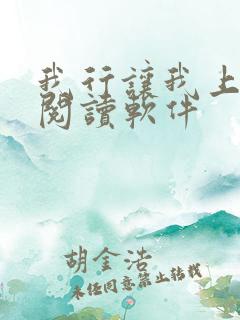 我行讓我上
閱讀軟件
胡金浩
未經同意禁止轉載